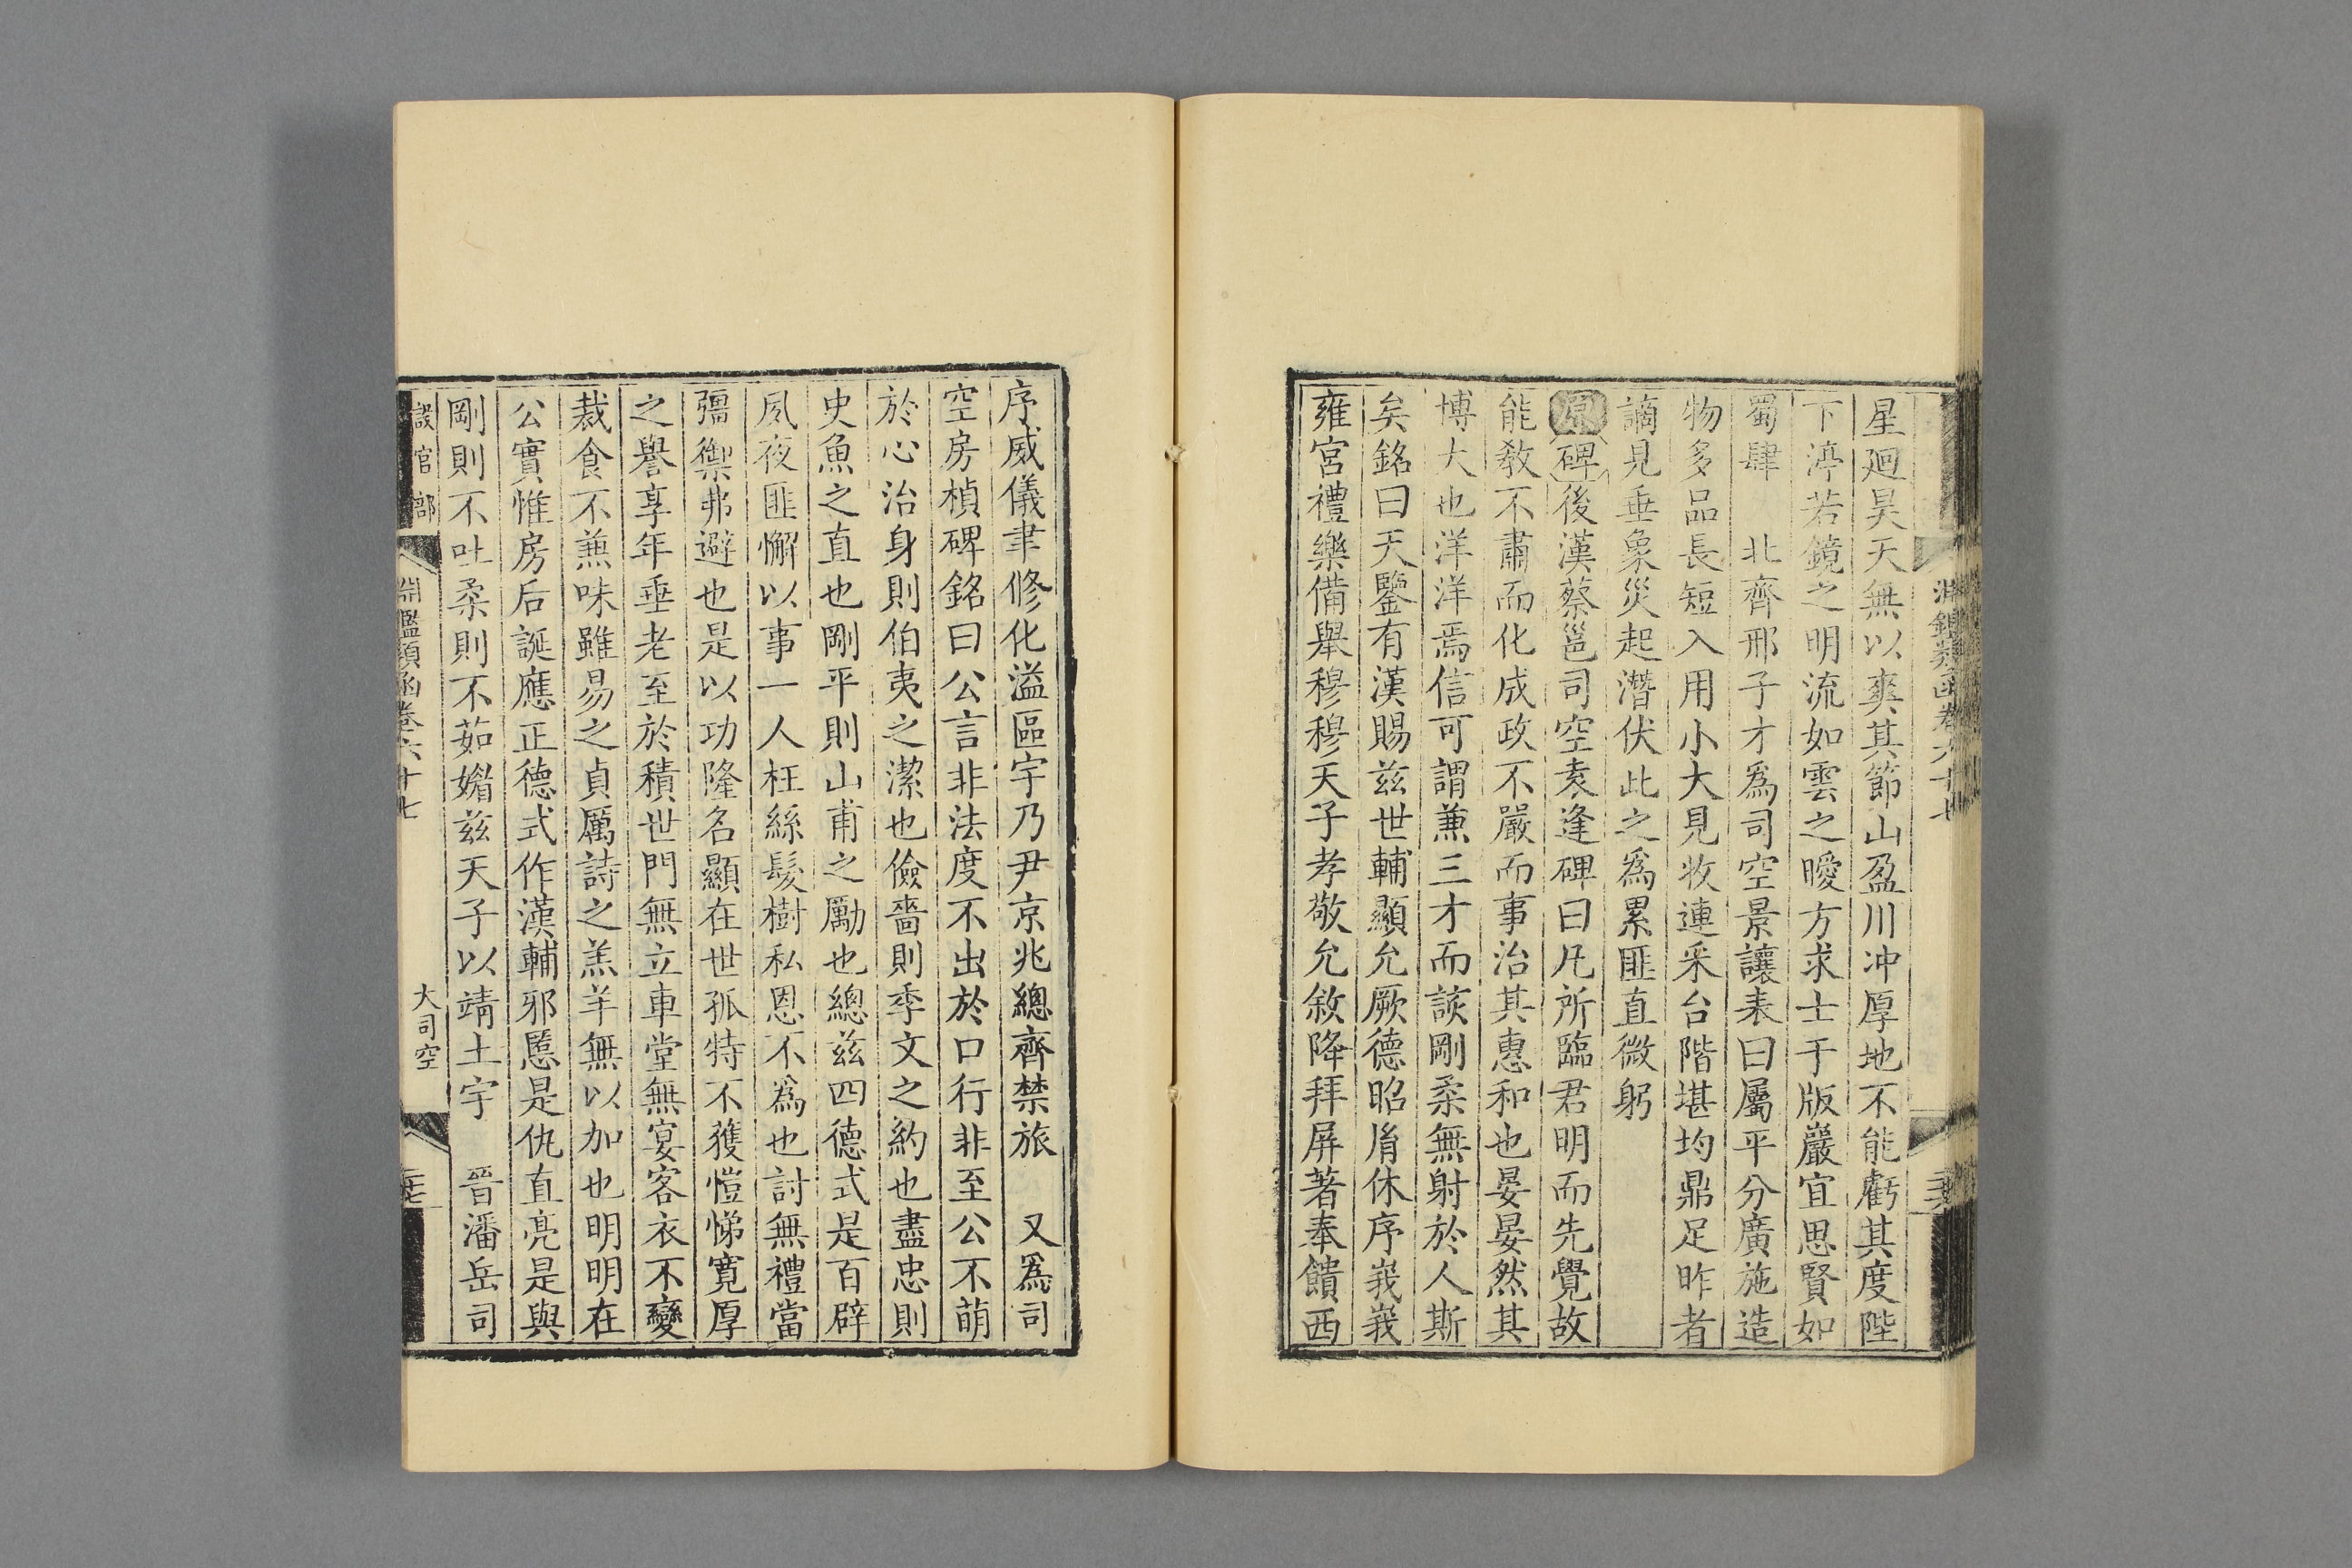 星廻昊天無以爽其節山盈川冲厚地不能虧其度陛
下渟若鏡之明流如雲之曖方求士于版巖宜思賢如
蜀肆　北齊邢子才爲司空景讓表曰屬平分廣施造
物多品長短入用小大見收連采台階堪均鼎足昨者
謫見垂象災起潛伏此之爲累匪直微躬
原碑後漢蔡邕司空袁逢碑曰凡所臨君明而先覺故
能敎不肅而化成政不嚴而事治其惠和也晏晏然其
博大也洋洋焉信可謂兼三才而該剛柔無射於人斯
矣銘曰天鑒有漢賜兹世輔顯允厥德昭胤休序峩峩
雍宮禮樂備舉穆穆天子孝敬允敘降拜屏著奉饋西
序威儀聿修化溢區宇乃尹京兆總齊禁旅　又爲司
空房楨碑銘曰公言非法度不出於口行非至公不萌
於心治身則伯夷之潔也儉嗇則季文之約也盡忠則
史魚之直也剛平則山甫之勵也總兹四德式是百辟
夙夜匪懈以事一人枉絲髮樹私恩不爲也討無禮當
彊禦弗避也是以功隆名顯在世孤特不獲愷悌寬厚
之譽享年垂老至於積世門無立車堂無宴客衣不變
裁食不兼味雖易之貞厲詩之羔羊無以加也明明在
公實惟房后誕應正德式作漢輔邪慝是仇直亮是與
剛則不吐柔則不茹媚兹天子以靖土宇　晉潘岳司
設官部　淵鑑類函卷六十七　大司空